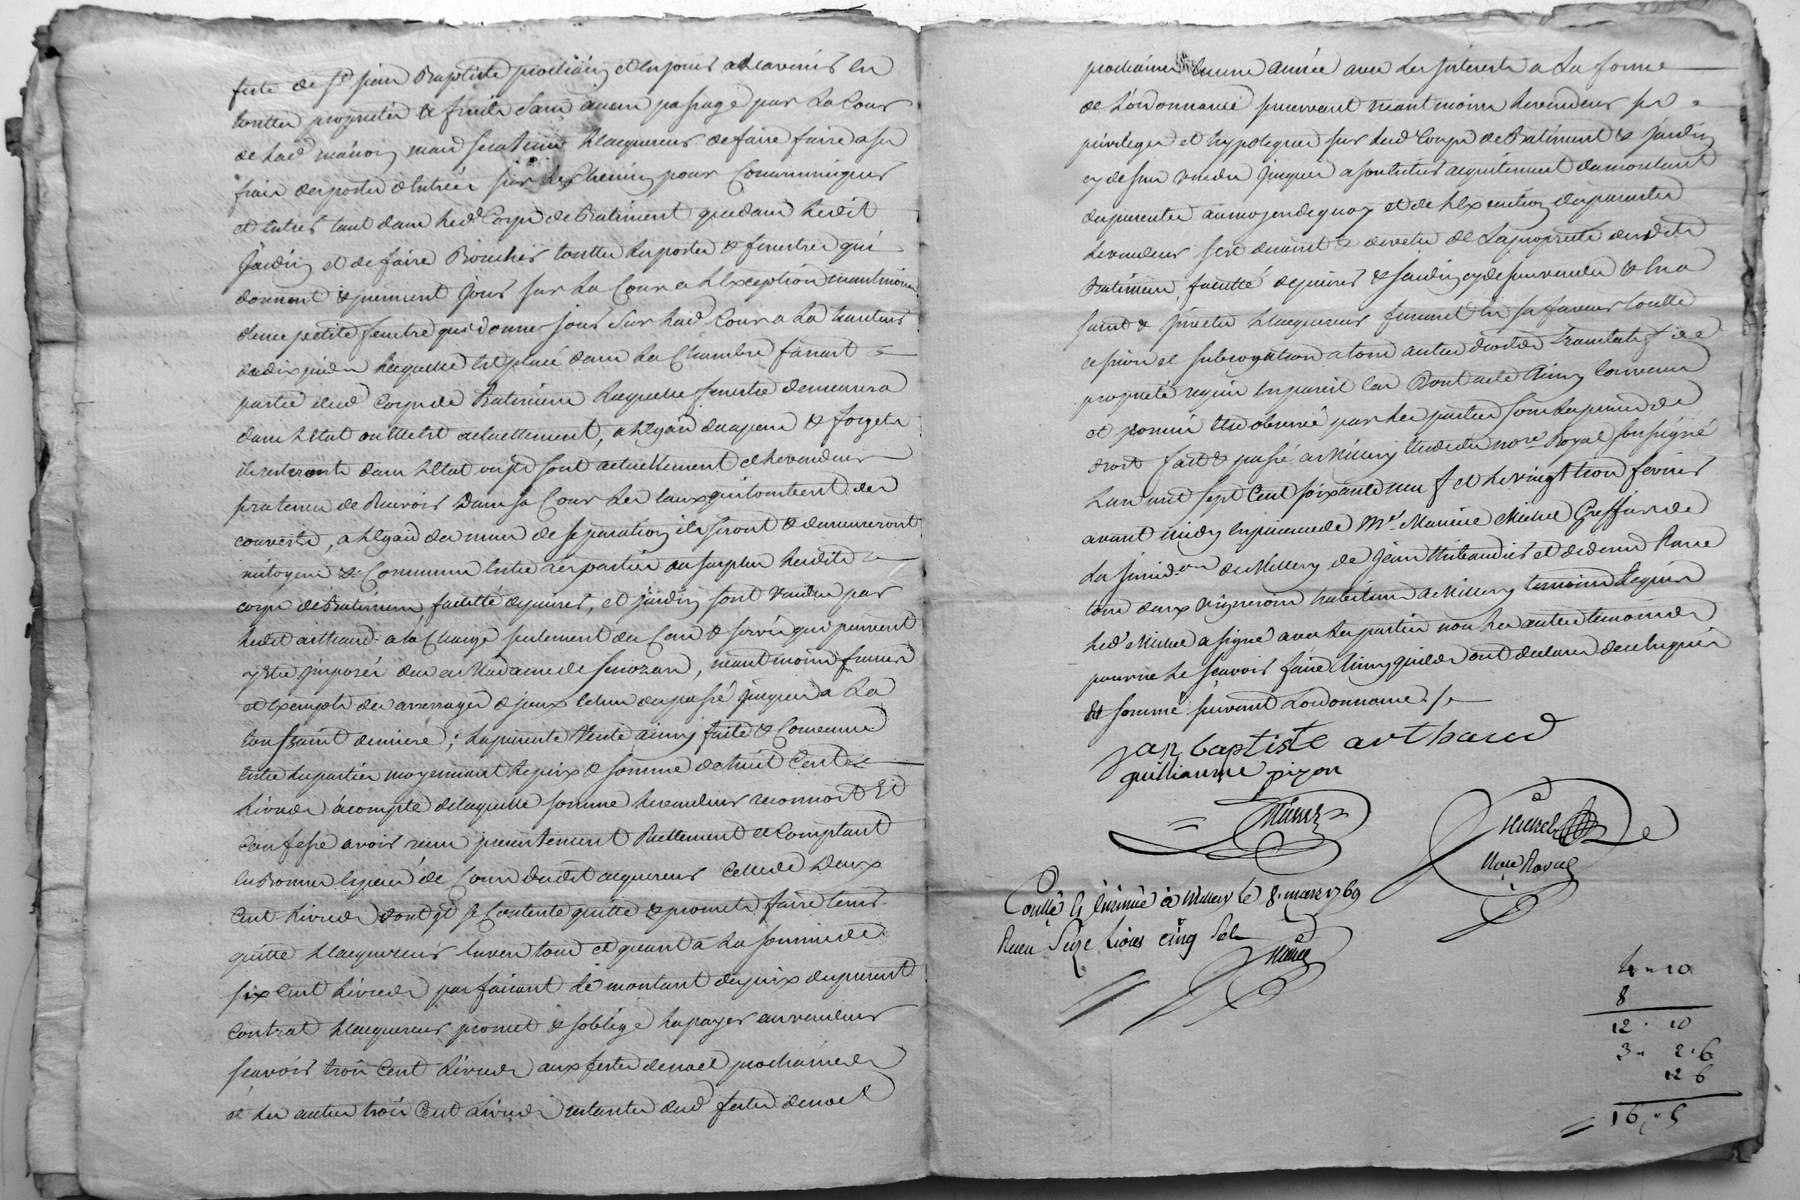 feste de St jean Baptiste prochain et en jouir a lavenir en
toutte proprieté & fruits sans aucun passage par la Cour
de lad maison mais sera tenu Lacquereur de faire faire a ses
frais des portes dentrée sur le Chemin pour Communiquer
et entrer tant dans led Corps de Batiment que dans ledit
Jardin et de faire Boucher touttes les portes & fenestres qui
donnent & prennent jour sur la Cour a lexception neantmoins
dune petite fenetre qui donne jour sur lad Cour a la hauteur
de dix pieds Laquelle est placé dans la Chambre faisant
partie dud Corps de Batiment Laquelle fenestre demeurera
dans létat ou elle est actuellement, a legard des & forgets
ils resteront dans létat ou ils sont actuellement et le vendeur
sera tenu de Recevoir dans sa Cour les eaux qui tombent des
couverts, a legard des murs de separation ils seront & demeureront
mitoyens & Communs entre les parties au surplus lesdits
corps de Batiment faculté de puiser, et jardin sont vendus par
ledit arthaud a la Charge seulement du Cens & servis qui peuvent
y être imposés dus a Madame de Senozan, neantmoins francs
et exempts des arrerages d'jceux et du passé jusques a la
toussaint derniere; la presente Vente ainsy faite & Convenue
entre les parties moyennant le prix & somme de huit Cents
Livres à compte de laquelle somme le vendeur reconnoit et
Confesse avoir recu presentement Reellement et Comptant
en bonnes especes de Cours dudit acquereur Celle de Deux
Cent Livres dont il se Contente quitte & promet faire tenir
quitte lacquereur envers tous et quant à la somme de
six Cent Livres parfaisant le montant du prix du present
Contrat Lacquereur promet & soblige la payer au vendeur
scavoir trois Cent Livres aux festes de noel prochaines
et les autres trois Cent Livres restantes aud festes de noel
prochaines en une année avec les jnterests a la forme
de lordonnance se reservant neantmoins le vendeur ses
privileges et hypoteques sur led Corps de Batiment & Jardin
cy dessus vendu jusques a son entier acquitement du montant
des presentes au moyen de quoy et de lexecution des presentes
Le vendeur sest demis & devetu de la proprieté desdits
Batiment faculté de puiser & jardin cy dessus vendu & en a
saisi & jnvestu Lacquereur faisant en sa faveur toutte
cession et subrogation a tous autres droits translatifs de
proprieté requis en pareil Cas Dont acte Ainsy Convenu
et promis etre observé par les parties sous les peines de
droit fait & passé a Millery etude du nore Royal soussigné
Lan mil sept Cent soixante neuf et le vingt trois fevrier
avant midy en presence de Mr Maurice Michel Greffier de
La jurid.on de Millery de jean thibaudier et de denis Rame
tous deux vignerons habitans a Millery temoins Requis
led Michel a signé avec les parties non les autres temoins
pour ne le scavoir faire ainsy quils ont declarés de ce enquis
et sommé suivant Lordonnance
jan baptiste arthaud
guilliaume pizon
Michel
Michel
Nore Royal
Conllé & insinué à Millery le 8. mars 1769
Recu Seize Livres cinq sols
Michel
4 " 10
8
12 . 10
3 " 2 . 6
12 6
16 " 5